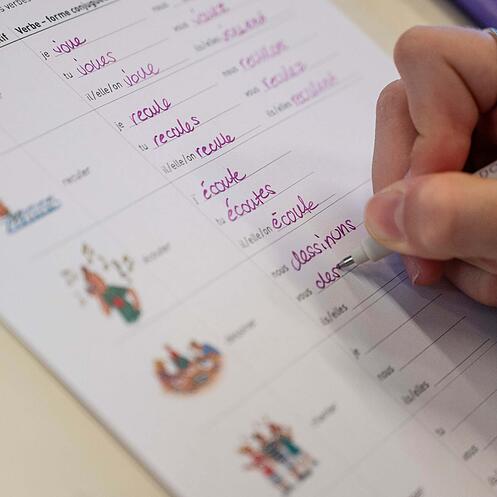 Verbe - forme conjuguée
je joue
tu joues
il/elle/on joue
nous
vous jouez
ils/elles jouent
reculer
je recule
tu recules
il/elle/on recule
nous reculon
vous reculez
ils/elles reculent
écouter
j' écoute
tu écoutes
il/elle/on écoute
nous dessinons
vous des
ils/elles
je
nous
ils/elles
tu
vous